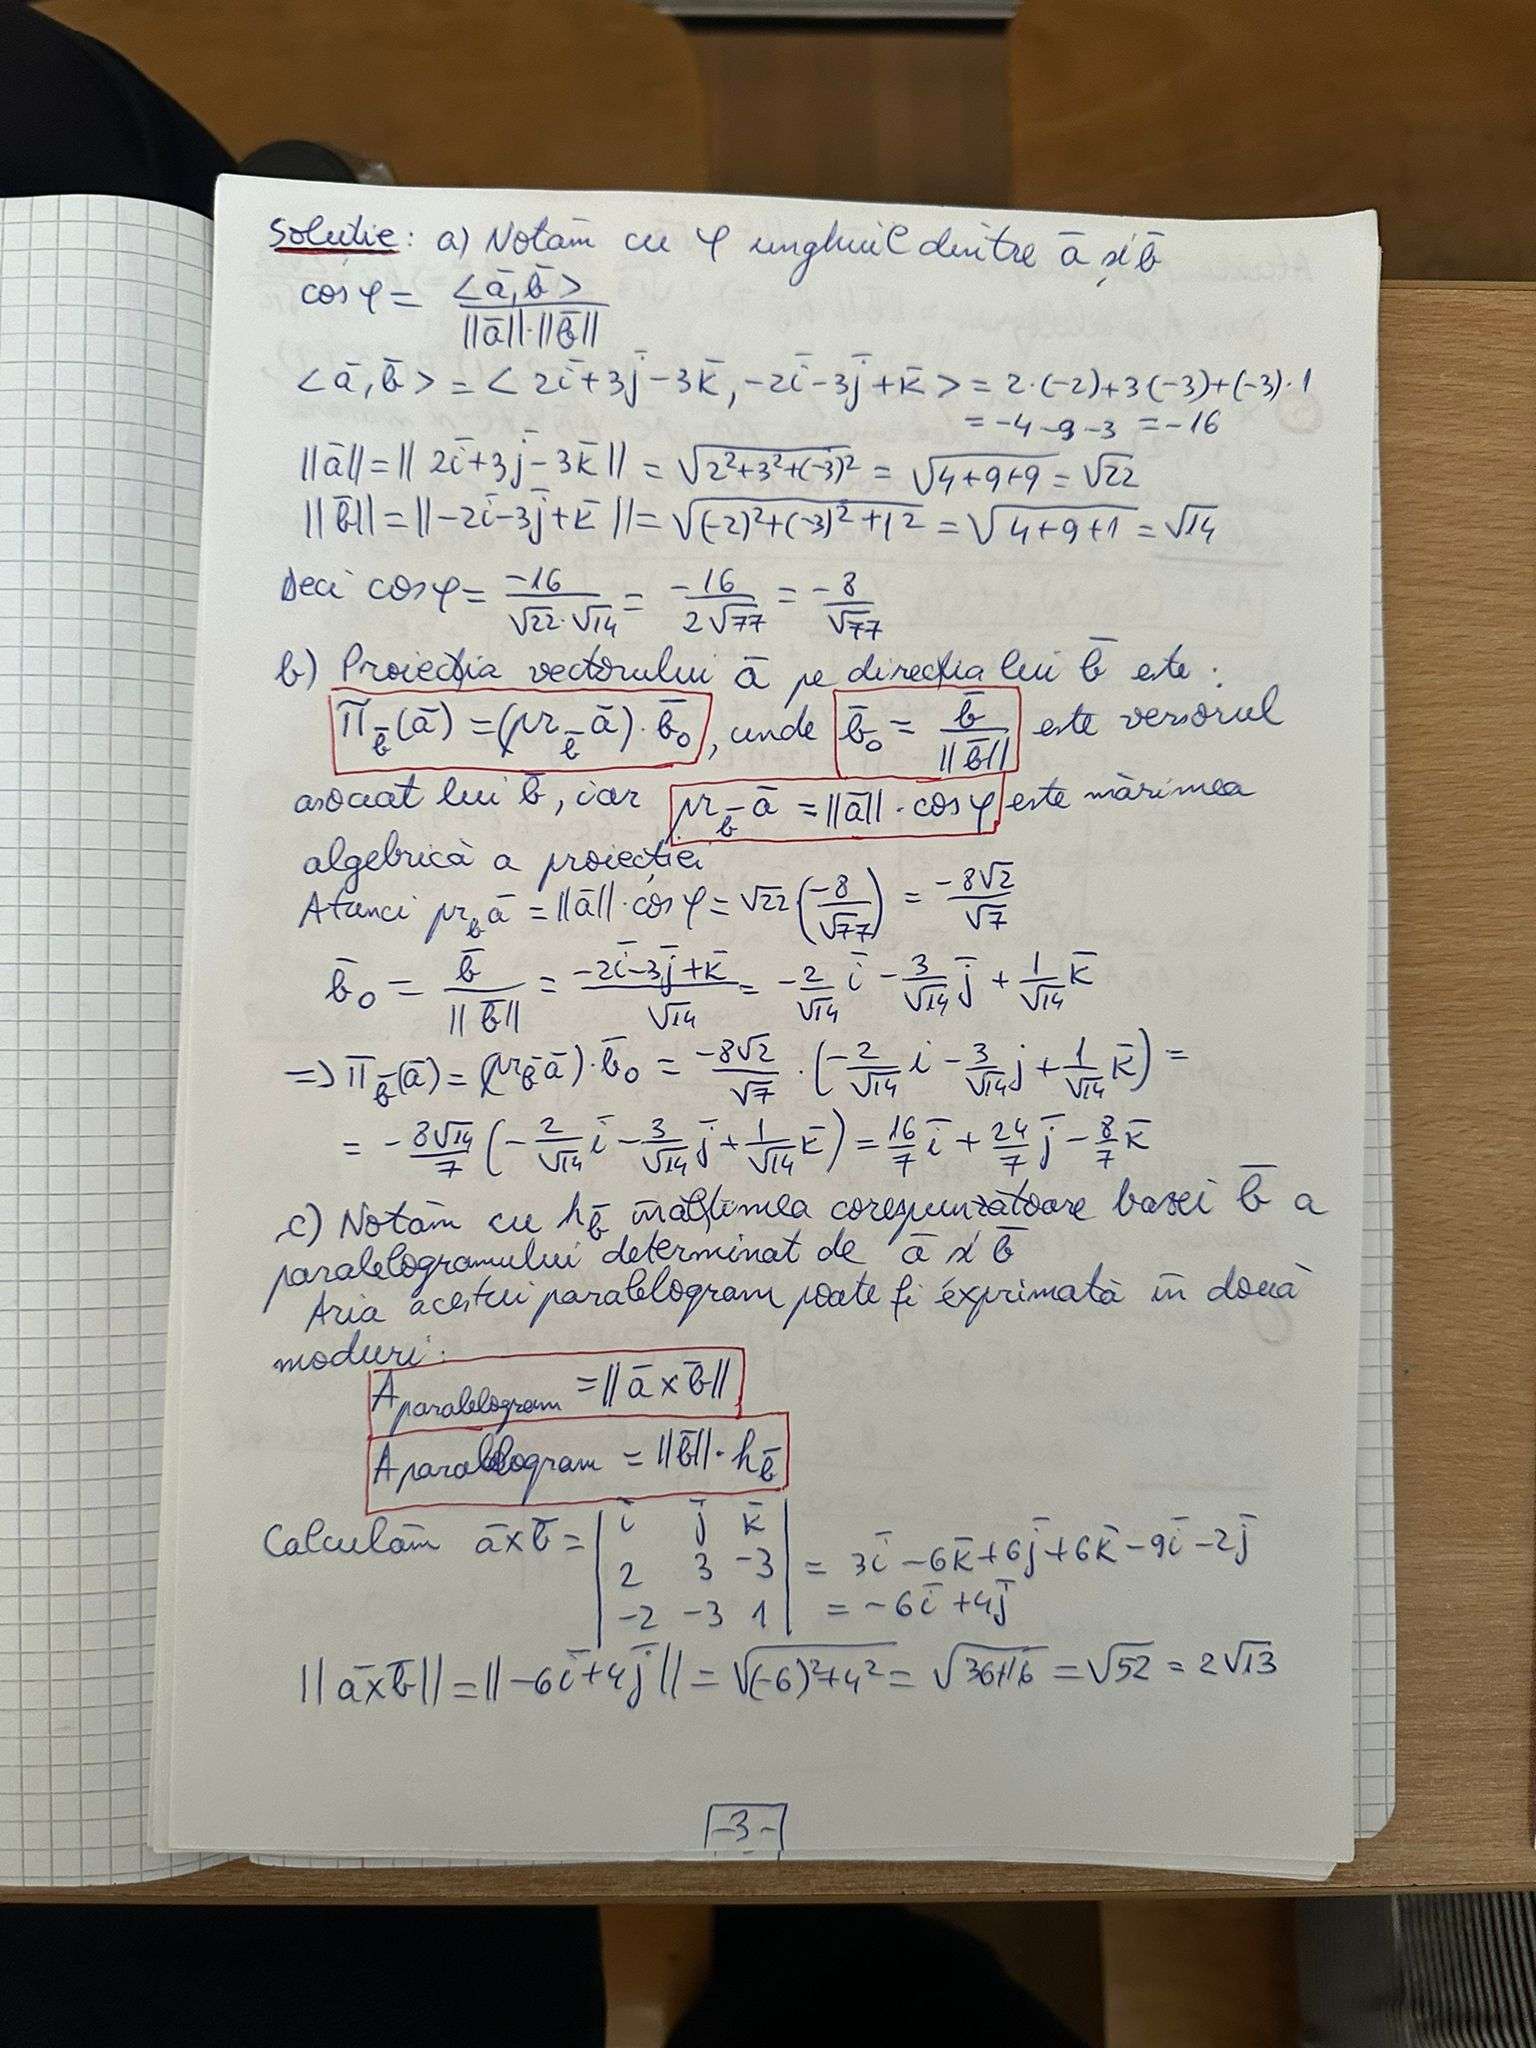 Soluție: a) Notăm cu φ unghiul dintre ā și b̄
cos φ = <ā, b̄> / ||ā||·||b̄||
<ā, b̄> = < 2ī+3j̄-3k̄, -2ī-3j̄+k̄ > = 2·(-2)+3(-3)+(-3)·1
= -4-9-3 = -16
||ā|| = || 2ī+3j̄-3k̄ || = √(2²+3²+(-3)²) = √(4+9+9) = √22
||b̄|| = ||-2ī-3j̄+k̄ || = √((-2)²+(-3)²+1²) = √(4+9+1) = √14
Deci cos φ = -16/(√22·√14) = -16/(2√77) = -8/√77
b) Proiecția vectorului ā pe direcția lui b̄ este:
π_b̄(ā) = (pr_b̄ ā)·b̄₀, unde b̄₀ = b̄/||b̄|| este versorul
asociat lui b̄, iar pr_b̄ ā = ||ā||·cos φ este mărimea
algebrică a proiecției
Atunci pr_b ā = ||ā||·cos φ = √22 (-8/√77) = -8√2/√7
b̄₀ = b̄/||b̄|| = (-2ī-3j̄+k̄)/√14 = -2/√14 ī - 3/√14 j̄ + 1/√14 k̄
=> π_b̄(ā) = (pr_b̄ ā)·b̄₀ = -8√2/√7 · (-2/√14 i - 3/√14 j + 1/√14 k̄) =
= -8√14/7 (-2/√14 ī - 3/√14 j̄ + 1/√14 k̄) = 16/7 ī + 24/7 j̄ - 8/7 k̄
c) Notăm cu h_b̄ înălțimea corespunzătoare bazei b̄ a
paralelogramului determinat de ā și b̄
Aria acestui paralelogram poate fi exprimată în două
moduri:
A_paralelogram = ||ā × b̄||
A paralelogram = ||b̄||·h_b̄
Calculăm ā×b̄ = | ī j̄ k̄ |
| 2 3 -3 | = 3ī - 6k̄ + 6j̄ + 6k̄ - 9ī - 2j̄
| -2 -3 1 | = -6ī + 4j̄
||ā×b̄|| = ||-6ī+4j̄|| = √((-6)²+4²) = √(36+16) = √52 = 2√13
-3-